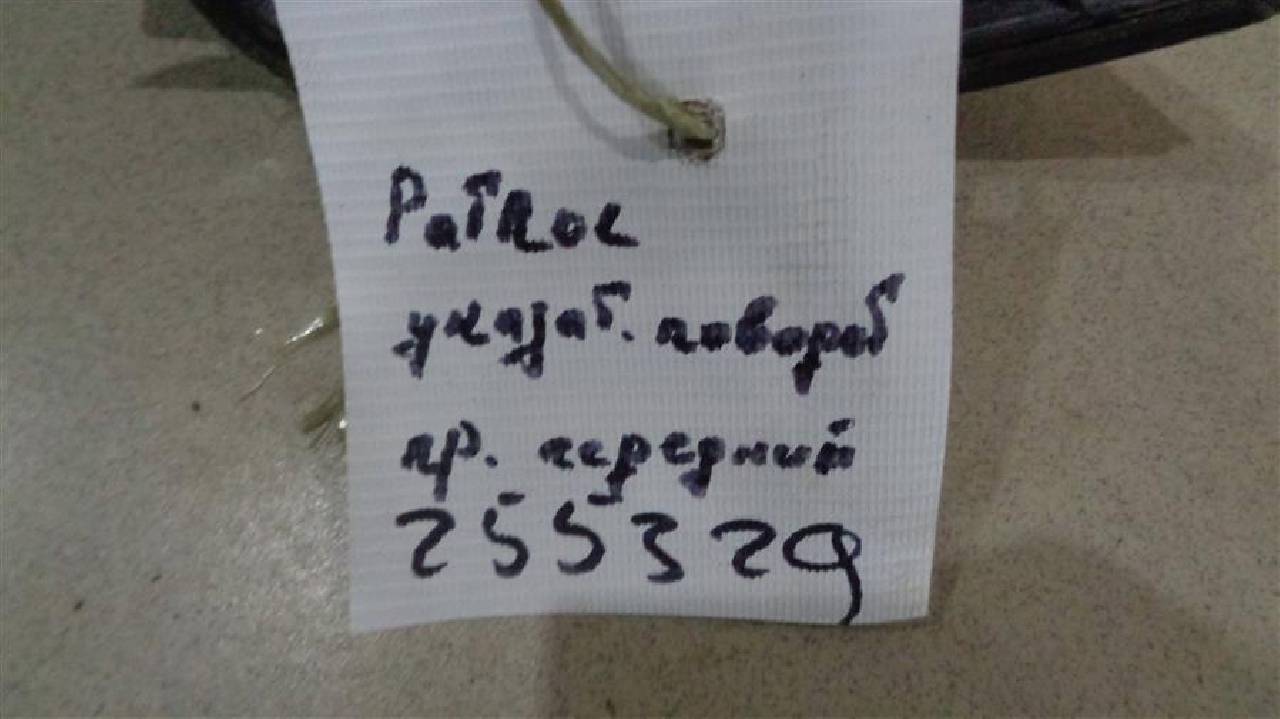 Patrol
указат. поворот
пр. передний
255329